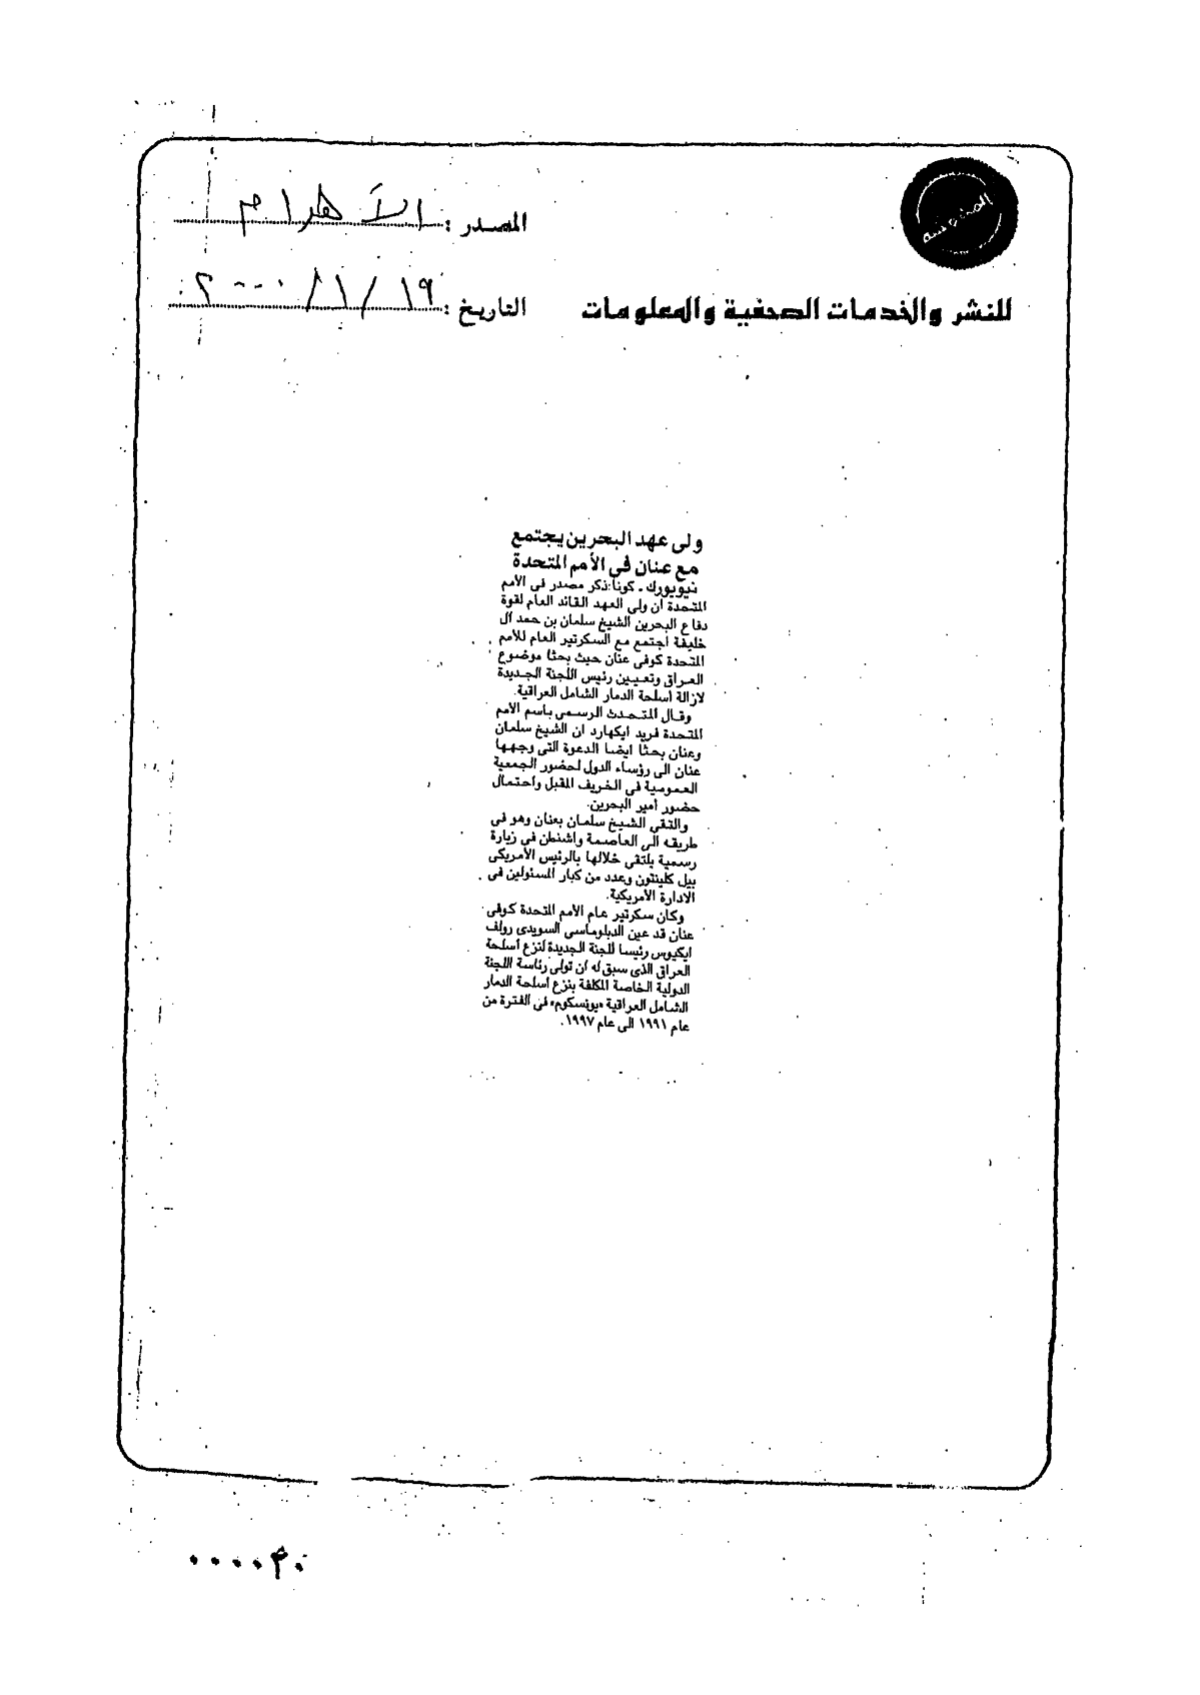 المصدر : الأهرام
للنشر والخدمات الصحفية والمعلومات
التاريخ : ١٩ / ١ / ٢٠٠٠
ولى عهد البحرين يجتمع
مع عنان فى الأمم المتحدة
نيويورك ـ كونا: ذكر مصدر فى الأمم
المتحدة ان ولى العهد القائد العام لقوة
دفاع البحرين الشيخ سلمان بن حمد آل
خليفة اجتمع مع السكرتير العام للأمم
المتحدة كوفى عنان حيث بحثا موضوع
العراق وتعيين رئيس اللجنة الجديدة
لازالة أسلحة الدمار الشامل العراقية.
وقال المتحدث الرسمى باسم الأمم
المتحدة فريد ايكهارد ان الشيخ سلمان
وعنان بحثا ايضا الدعوة التى وجهها
عنان الى رؤساء الدول لحضور الجمعية
العمومية فى الخريف المقبل واحتمال
حضور أمير البحرين.
والتقى الشيخ سلمان بعنان وهو فى
طريقه الى العاصمة واشنطن فى زيارة
رسمية يلتقى خلالها بالرئيس الأمريكى
بيل كلينتون وعدد من كبار المسئولين فى
الادارة الأمريكية.
وكان سكرتير عام الأمم المتحدة كوفى
عنان قد عين الدبلوماسى السويدى رولف
ايكيوس رئيسا للجنة الجديدة لنزع أسلحة
العراق الذى سبق له ان تولى رئاسة اللجنة
الدولية الخاصة المكلفة بنزع اسلحة الدمار
الشامل العراقية «يونسكوم» فى الفترة من
عام ١٩٩١ الى عام ١٩٩٧.